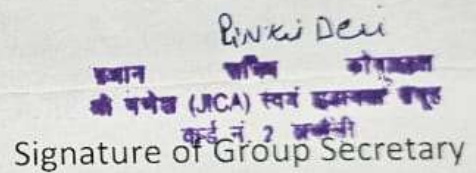 Pinki Devi
प्रधान सचिव कोषाध्यक्ष
श्री गणेश (JICA) स्वयं सहायता समूह
वार्ड नं. 2
Signature of Group Secretary